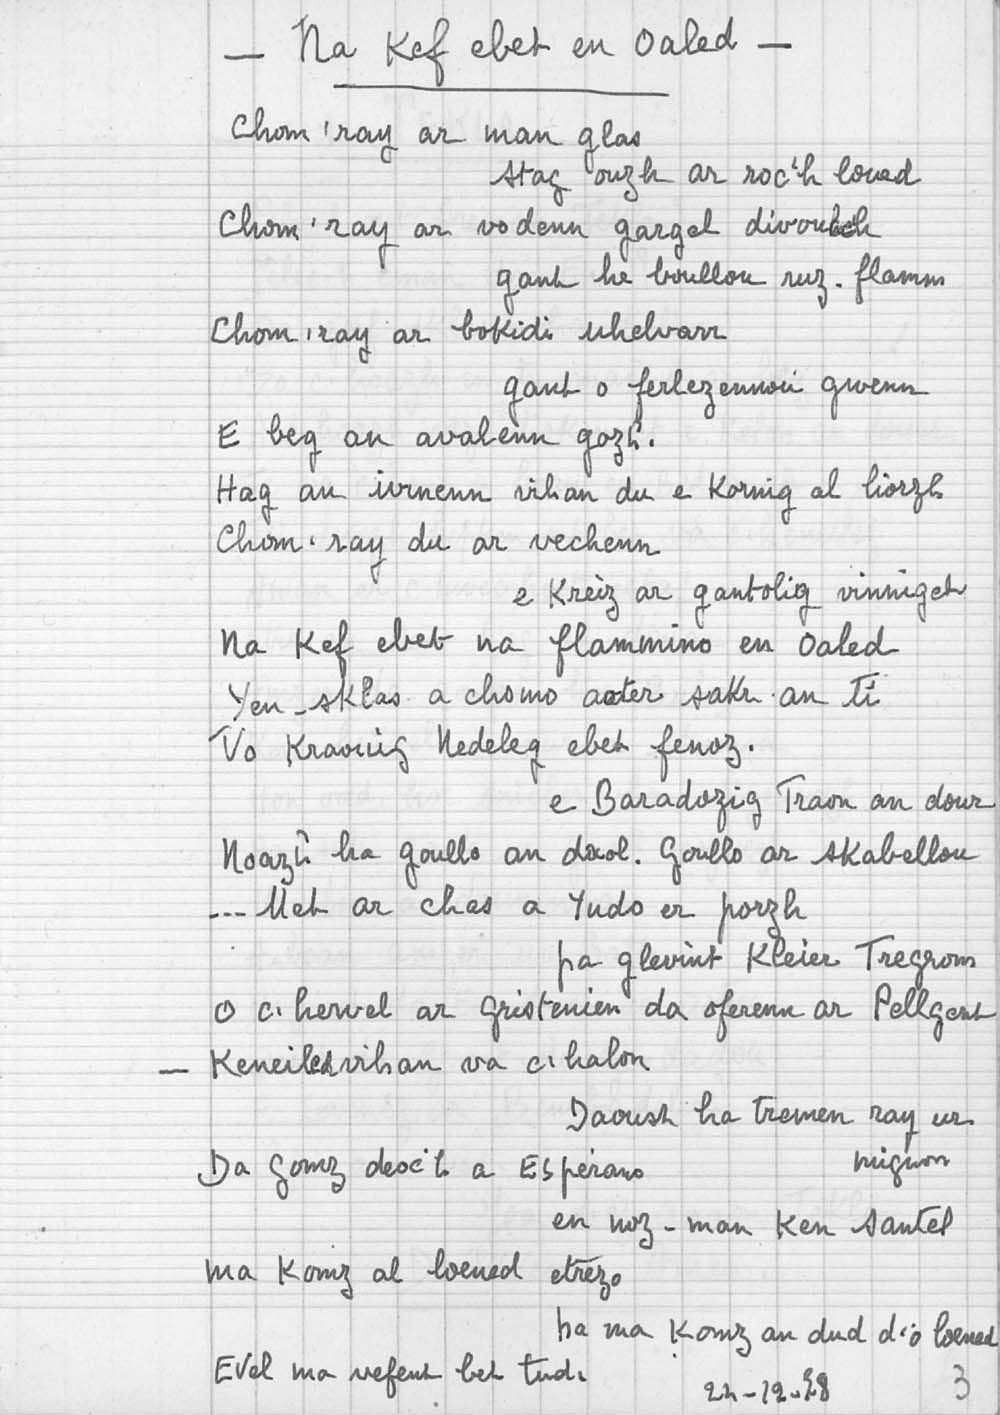 — Na Kef ebet en Oaled —
Chom 'ray ar man glas
stag ouzh ar roc'h loued
Chom 'ray ar vodenn gargel divoulc'h
gant he boullou ruz-flamm
Chom 'ray ar bokidi uhelvarr
gant o ferlezennoù gwenn
E beg an avalenn gozh.
Hag an ivinenn vihan du e Kornig al liorzh
Chom 'ray du ar vechenn
e Kreiz ar gantolig vinniget
Na Kef ebet na flammino en Oaled
Yen-sklas a chomo aoter sakr an Ti
Vo Kraouig Nedeleg ebet fenoz.
e Baradozig Traon an dour
Noazh ha goullo an daol. Goullo ar skabellou
... Met ar chas a Yudo er porzh
pa glevint Kleier Tregrom
O c'hervel ar gristenien da oferenn ar Pellgent
— Keneiled vihan va c'halon
Daoust ha tremen 'ray ur
mignon
Da gomz deoc'h a Esperans
en noz-man Ken santel
ma Komz al loened etrezo
ha ma Komz an dud d'o loened
Evel ma vefent bet tud.
3